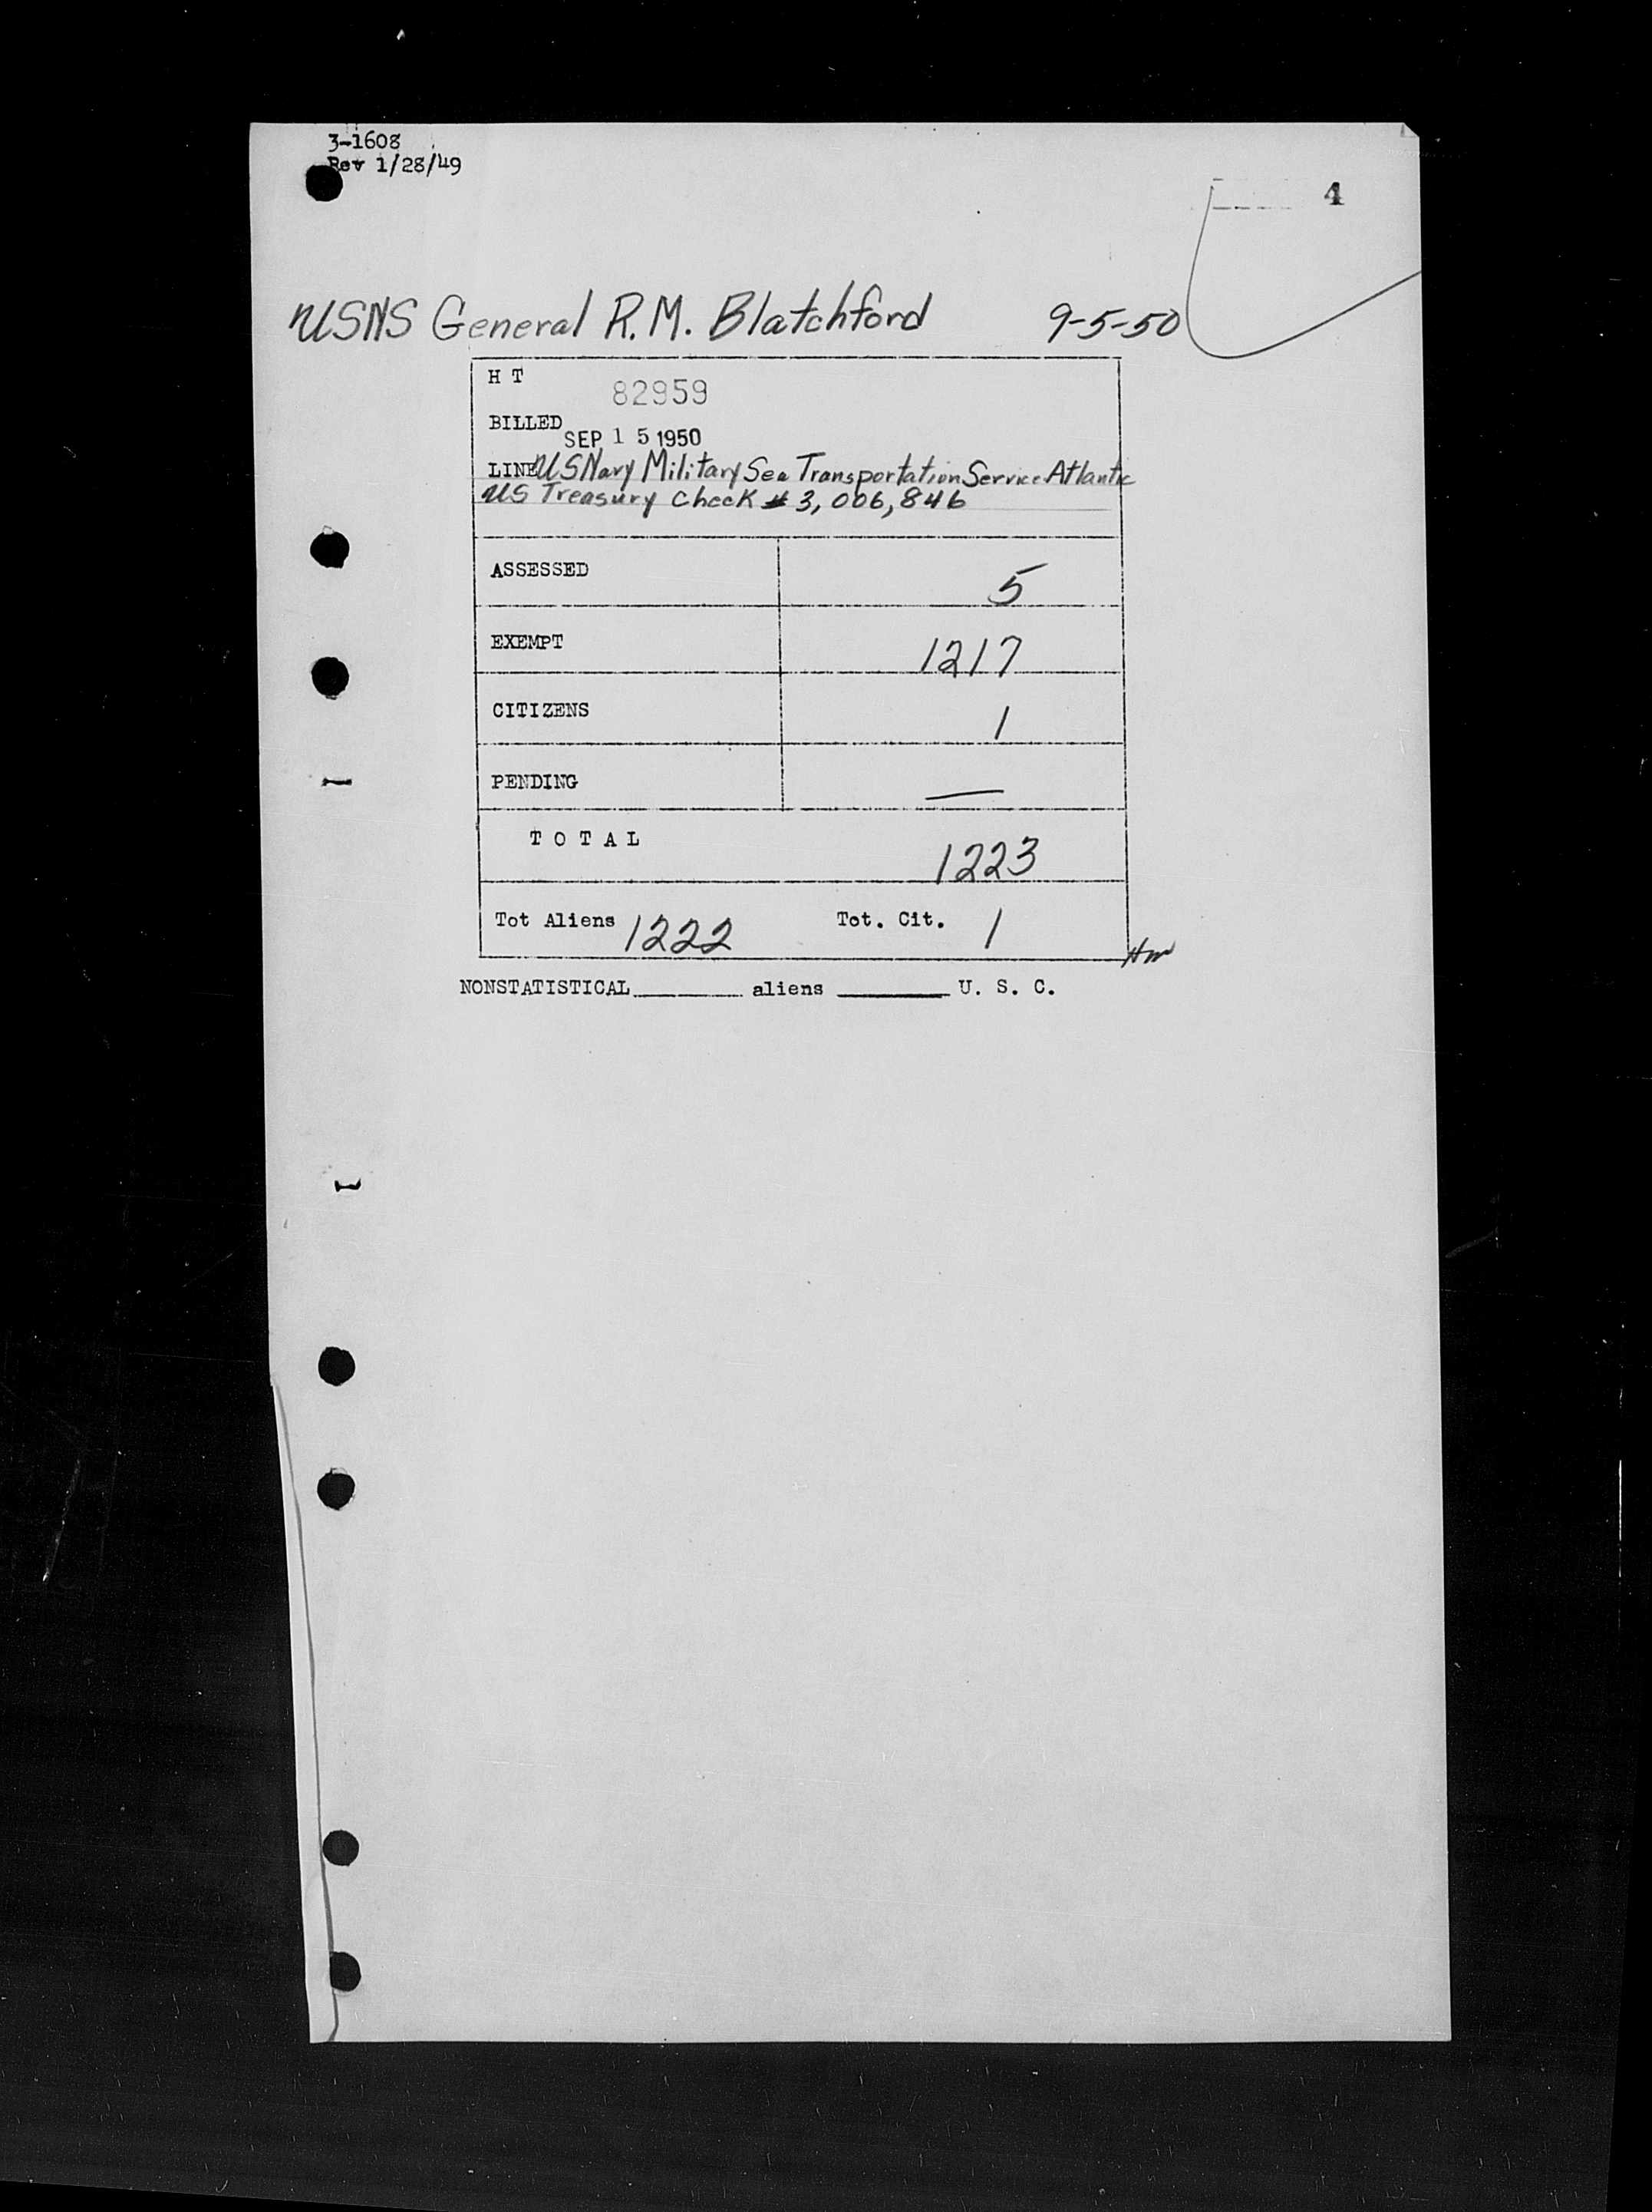 3-1608
Rev 1/28/49
4
USNS General R.M. Blatchford 9-5-50
H T 82959
BILLED SEP 15 1950
LINE US Navy Military Sea Transportation Service Atlantic
US Treasury Check # 3,006,846
ASSESSED 5
EXEMPT 1217
CITIZENS 1
PENDING —
T O T A L 1223
Tot Aliens 1222 Tot. Cit. 1
NONSTATISTICAL______ aliens ______ U. S. C.